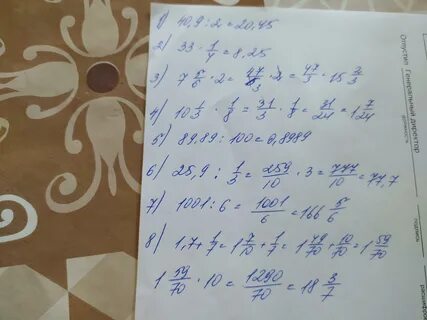 1) 40,9 : 2 = 20,45
2) 33 · 1/4 = 8,25
3) 7 5/6 · 2 = 47/6 3 · 2 = 47/3 · 15 2/3
4) 10 1/3 · 1/8 = 31/3 · 1/8 = 31/24 = 1 7/24
5) 89,89 : 100 = 0,8989
6) 25,9 : 1/3 = 259/10 · 3 = 777/10 = 77,7
7) 1001 : 6 = 1001/6 = 166 5/6
8) 1,7 + 1/7 = 1 7/10 + 1/7 = 1 49/70 + 10/70 = 1 59/70
1 59/70 · 10 = 1290/70 = 18 3/7
Отпустил Генеральный директор
должность
подпись